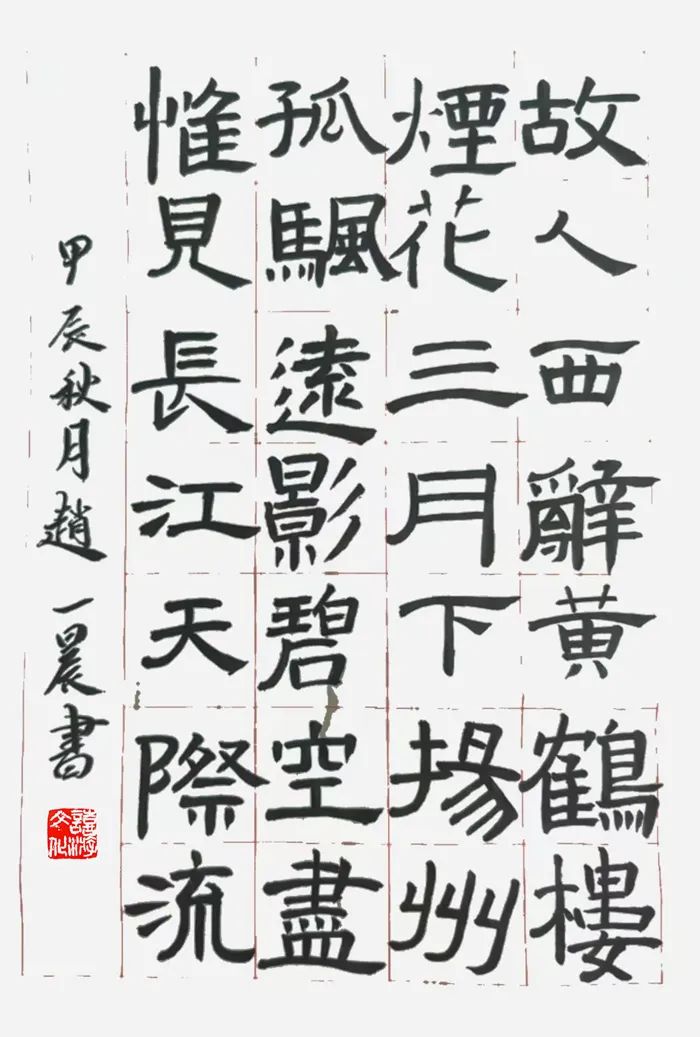 故人西辭黄鶴樓
煙花三月下揚州
孤颿遠影碧空盡
惟見長江天際流
甲辰秋月趙一晨書